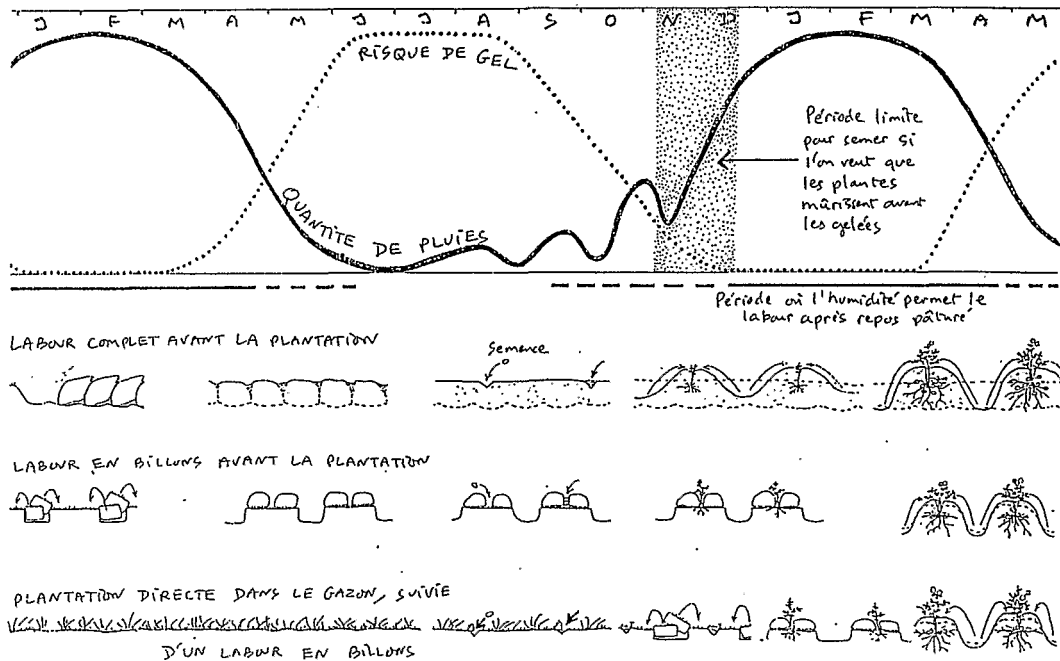 J F M A M J J A S O N D J F M A M
RISQUE DE GEL
Période limite
pour semer si
l'on veut que
les plantes
mûrissent avant
les gelées
QUANTITE DE PLUIES
Période où l'humidité permet le
labour après repos pâturé
LABOUR COMPLET AVANT LA PLANTATION
Semence
LABOUR EN BILLONS AVANT LA PLANTATION
PLANTATION DIRECTE DANS LE GAZON, SUIVIE
D'UN LABOUR EN BILLONS